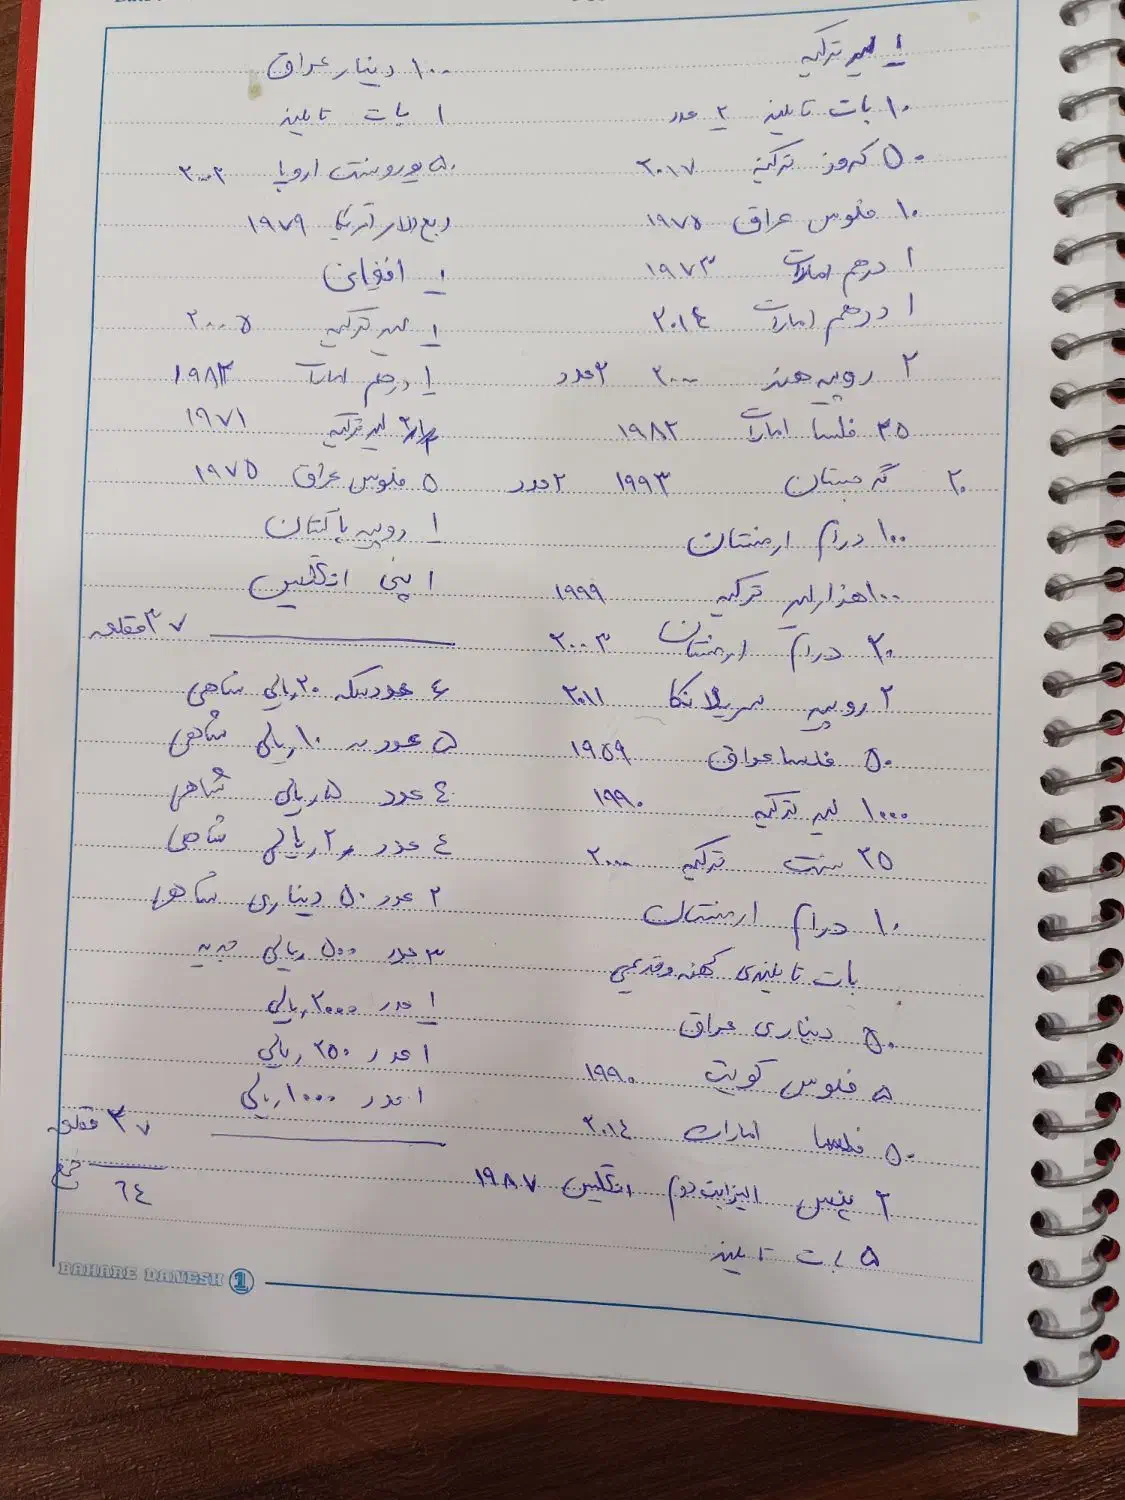 ۱ لیر ترکیه
۱۰ بات تایلند ۲ عدد
۵۰ کروز ترکیه ۲۰۱۷
۱۰ فلوس عراق ۱۹۷۵
۱ درهم امارات ۱۹۷۳
۱ درهم امارات ۲۰۱٤
۲ روپیه هند ۲۰۰۰ ۳ عدد
۲۵ فلسا امارات ۱۹۸۲
۲۰ گرجستان ۱۹۹۳ ۲ عدد
۱۰۰ درام ارمنستان
۱۰۰ هزار لیر ترکیه ۱۹۹۹
۲۰ درام ارمنستان ۲۰۰۳
۲ روپیه سریلانکا ۲۰۱۱
۵۰ فلسا عراق ۱۹۵۹
۱۰۰۰ لیر ترکیه ۱۹۹۰
۲۵ سنت ترکیه ۲۰۰۰
۱۰ درام ارمنستان
بات تایلندی کهنه و قدیمی
۵۰ دیناری عراق
۵ فلوس کویت ۱۹۹۰
۵۰ فلسا امارات ۲۰۱٤
۲ پنس الیزابت دوم انگلیس ۱۹۸۷
۵ بات تایلند
۱۰۰ دینار عراق
۱ بات تایلند
۵۰ یورو سنت اروپا ۲۰۰۲
ربع دلار آمریکا ۱۹۷۹
۱ افغانی
۱ لیر ترکیه ۲۰۰۵
۱ درهم امارات ۱۹۸۳
لیر ترکیه ۱۹۷۱
۵ فلوس عراق ۱۹۷۵
۱ روپیه پاکستان
۱ پنی انگلیس
۳۷ قطعه
٤ عدد سکه ۲۰ ریالی شاهی
۵ عدد ۱۰ ریالی شاهی
٤ عدد ۵ ریالی شاهی
٤ عدد ۲ ریالی شاهی
۲ عدد ۵۰ دیناری شاهی
۳ عدد ۵۰۰ ریالی جدید
۱ عدد ۲۰۰۰ ریالی
۱ عدد ۲۵۰ ریالی
۱ عدد ۱۰۰۰ ریالی
۲۷ قطعه
جمع ٦٤
BAHARE DANESH 1